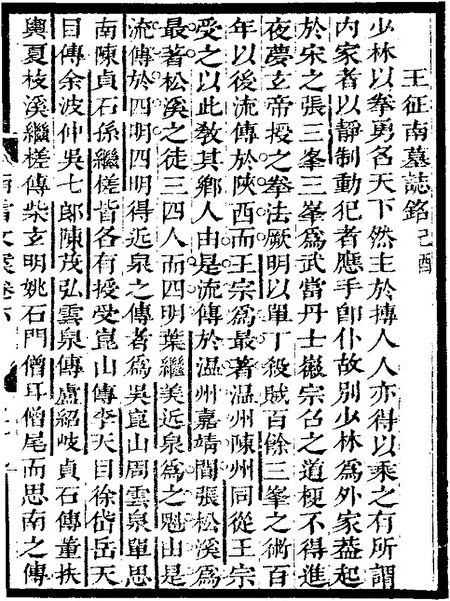 王征南墓誌銘己酉
少林以拳勇名天下然主於搏人人亦得以乘之有所謂
內家者以靜制動犯者應手即仆故別少林為外家葢起
於宋之張三峯三峯為武當丹士徽宗召之道梗不得進
夜夢玄帝授之拳法厥明以單丁殺賊百餘三峯之術百
年以後流傳於陜西而王宗為最著溫州陳州同從王宗
受之以此敎其鄉人由是流傳於温州嘉靖間張松溪為
最著松溪之徒三四人而四明葉繼美近泉為之魁由是
流傳於四明四明得近泉之傳者為吳崑山周雲泉單思
南陳貞石孫繼槎皆各有授受崑山傳李天目徐岱岳天
目傳余波仲吳七郎陳茂弘雲泉傳盧紹岐貞石傳董扶
輿夏枝溪繼槎傳柴玄明姚石門僧耳僧尾而思南之傳
南雷文案卷六